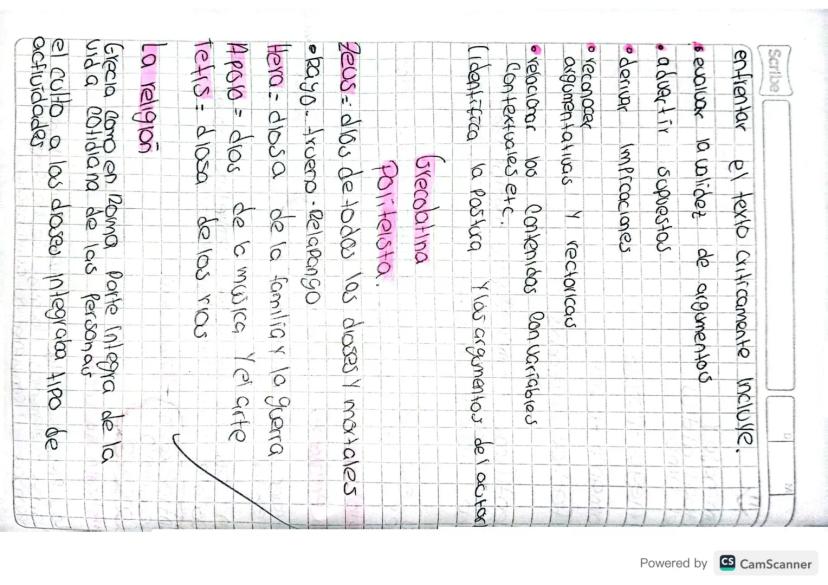 Scribe
enfrentar el texto criticamente incluye.
• evaluar la validez de argumentos
• advertir supuestos
• derivar implicaciones
• reconocer
argumentativas y rectoricas
• relacionar los contenidos con variables
contextuales etc.
(identifica la postura y los argumentos del
Grecolatina
Politeista.
Zeus = dios de todos los dioses y mortales
• Rayo - trueno - Relapango
Hera = diosa de la familia y la guerra
Apolo = dios de la musica y el arte
Tetis = diosa de los rios
La religión
Grecia como en Roma parte integra de la
vida cotidiana de las personas
el culto a los dioses integraba tipo de
actividades
Powered by CS CamScanner